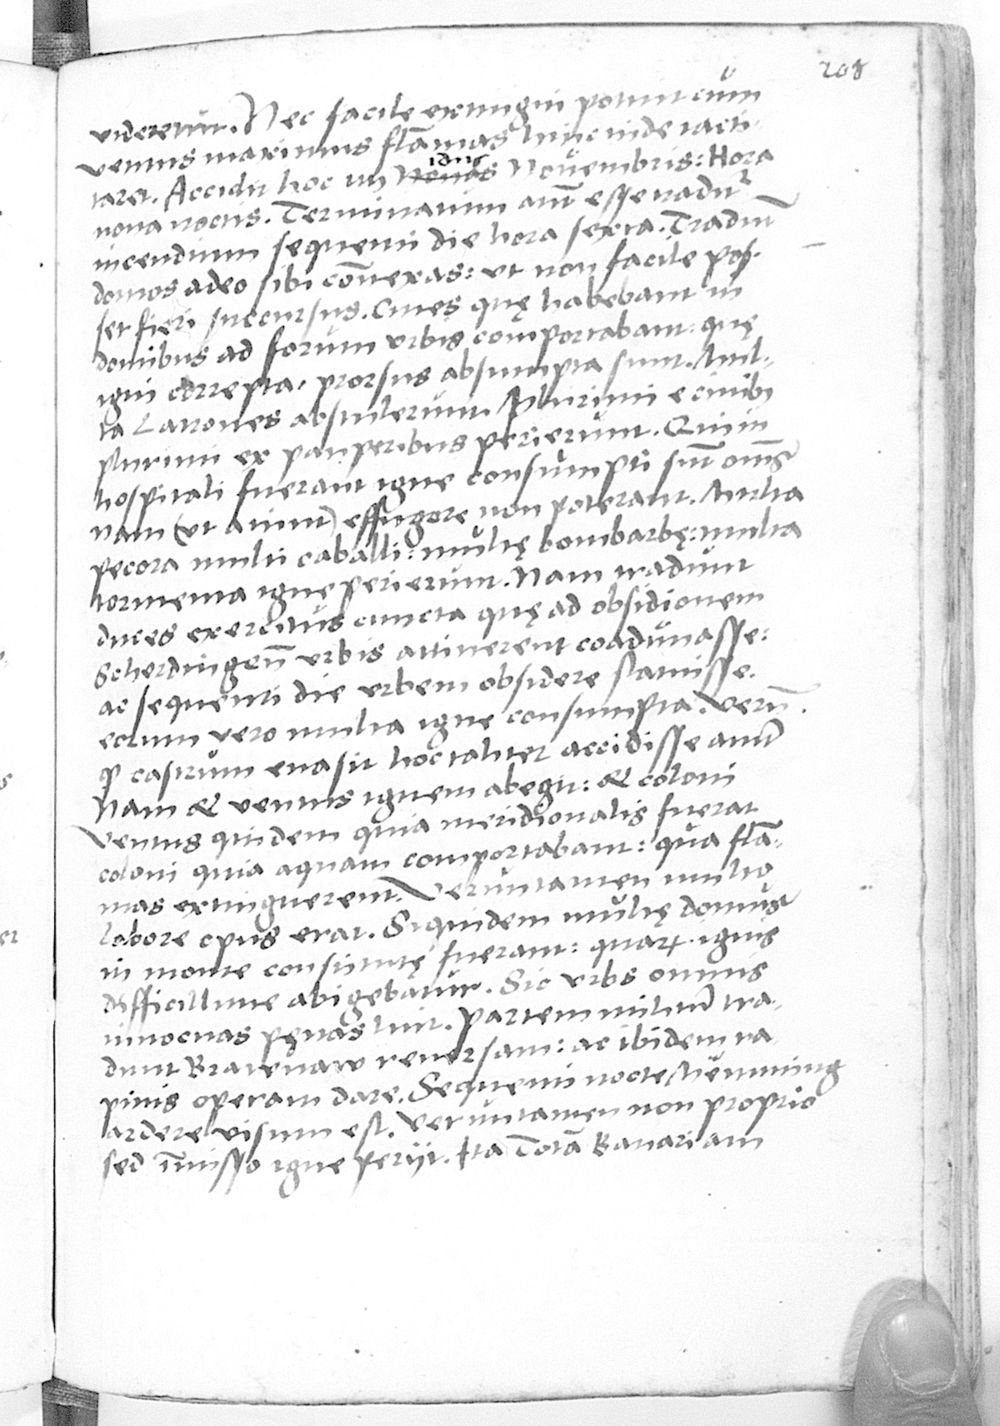 208
videretur. Nec facile extingui potuit cum
ventus maximus flāmas hinc inde iacti-
taret. Accidit hoc iiij Nonas idus Novembris: Hora
nona noctis. Terminatum aūt esse tradūt
incendium sequenti die hora sexta. Tradūt
domos adeo sibi cōnexas: ut non facile pos-
set fieri succursus. Cives quę habebant in
domibus ad forum urbis comportabant: quę
igni correpta, prorsus absumpta sunt. Mul-
ta Latrones abstulerunt. Plurimi e civibȝ
plurimi ex pauperibus perierunt. Qui in
hospitali fuerant igne consumpti sūt omēs
nam (ut aiunt) effugere non poterant. Multa
pecora multi caballi: multę bombardę: multa
tormenta igne perierunt. Nam tradunt
duces exercitus cuncta quę ad obsidionem
Scherdingeñ urbis attinerent coadunasse:
ac sequenti die urbem obsidere statuisse.
eorum vero multa igne consumpta. Verū
ꝙ castrum evasit hoc taliter accidisse aiūt
Nam & ventus ignem abegit: & coloni
ventus quidem quia meridionalis fuerat
coloni quia aquam comportabant: qua flā-
mas extinguerent. Veruntamen multo
labore opus erat. Siquidem multę domus
in monte constitutę fuerant: quarꝝ ignis
difficillime abigebatur. Sic urbs omnis
innocuas pęnas luit. Partem militū tra-
dunt Bravnaw reversam: ac ibidem ra-
pinis operam dare. Sequenti nocte Nemming
ardere visum est. Veruntamen non proprio
sed īmisso igne periit. Ita Totā Bavariam